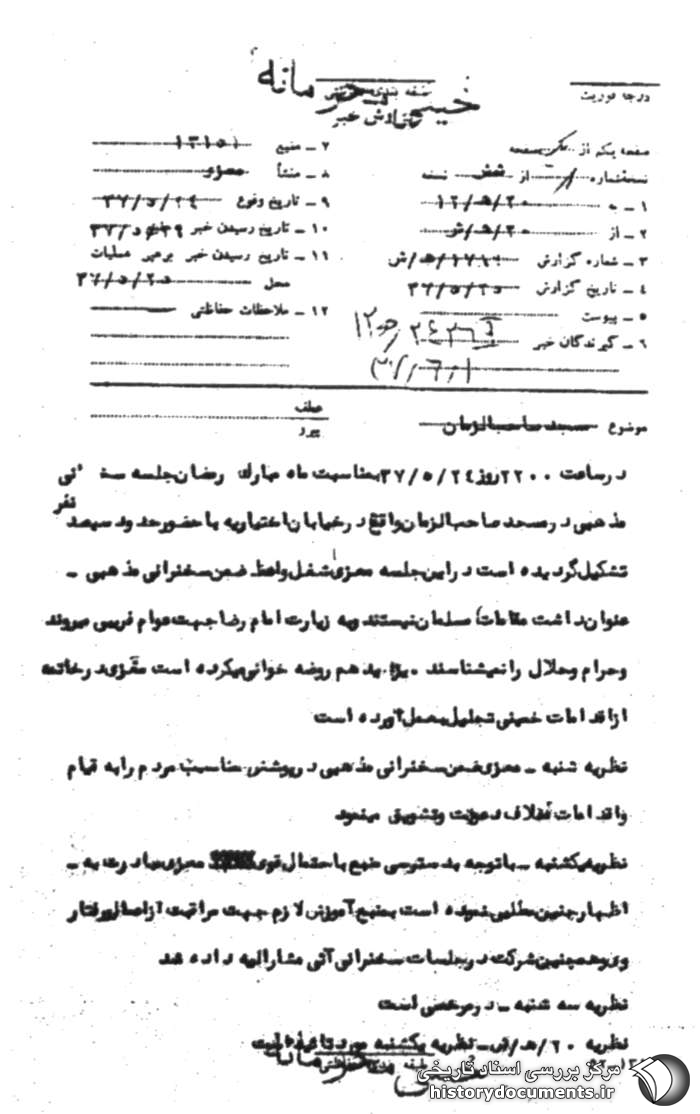 خیلی محرمانه
درجه فوریت
طبقه بندی حفاظتی
گزارش خبر
صفحه یکم از یک صفحه
نسخه شماره از شش نسخه
۱ ـ به ۲۰/ه/۱۲
۲ ـ از ۲۰/ه/ش
۳ ـ شماره گزارش
۴ ـ تاریخ گزارش ۳۷/۵/۲۵
۵ ـ پیوست
۶ ـ گیرندگان خبر
۷ ـ منبع ۱۳۱۵۱
۸ ـ منشأ معزی
۹ ـ تاریخ وقوع ۳۷/۵/۲۴
۱۰ ـ تاریخ رسیدن خبر
۱۱ ـ تاریخ رسیدن خبر برهبر عملیات
محل ۳۷/۵/۲۵
۱۲ ـ ملاحظات حفاظتی
موضوع مسجد صاحب الزمان
عطف
پیرو
در ساعت ۲۲۰۰ روز ۳۷/۵/۲۴ بمناسبت ماه مبارک رمضان جلسه سخنرانی
مذهبی در مسجد صاحب الزمان واقع در خیابان اختیاریه با حضور حدود سیصد نفر
تشکیل گردیده است در این جلسه معزی شغل واعظ ضمن سخنرانی مذهبی ـ
عنوان داشت مقامات مسلمان نیستند وبه زیارت امام رضا جهت عوام فریبی میروند
وحرام وحلال را نمیشناسند . یزید هم روضه خوانی میکرده است معزی در خاتمه
از اقدامات خمینی تجلیل بعمل آورده است
نظریه شنبه ـ معزی ضمن سخنرانی مذهبی در پوشش مناسب مردم را به قیام
واقدامات خلاف دعوت وتشویق مینمود
نظریه یکشنبه ـ با توجه بدسترسی منبع با احتمال قوی معزی مبادرت به ـ
اظهار چنین مطلبی نموده است بمنبع آموزش لازم جهت مراقبت از اعمال ورفتار
وی وهمچنین شرکت در جلسات سخنرانی آتی مشارالیه داده شد
نظریه سه شنبه ـ در مرخصی است
نظریه ۲۰/ه/ش ـ نظریه یکشنبه مورد تأیید است
مرکز بررسی اسناد تاریخی
historydocuments.ir